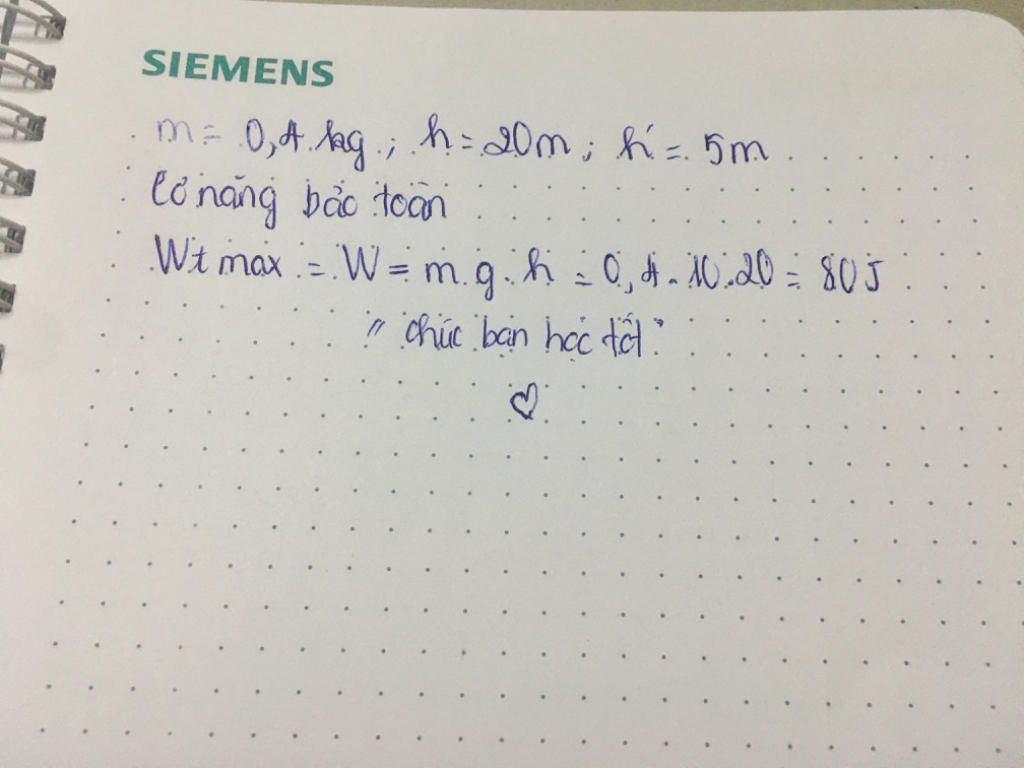 SIEMENS
m = 0,4 kg ; h = 20m ; h' = 5m
Cơ năng bảo toàn
Wt max = W = m.g.h = 0,4.10.20 = 80J
" chúc bạn học tốt "
♡